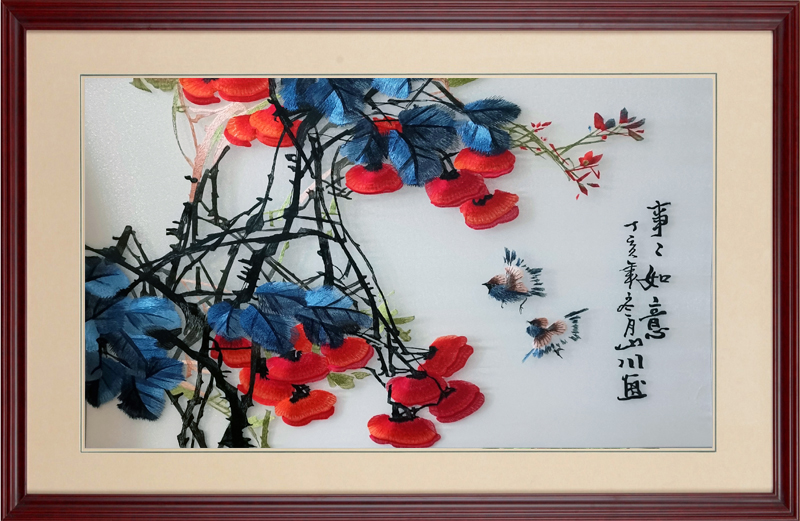 事〻如意
丁亥年冬月山川画